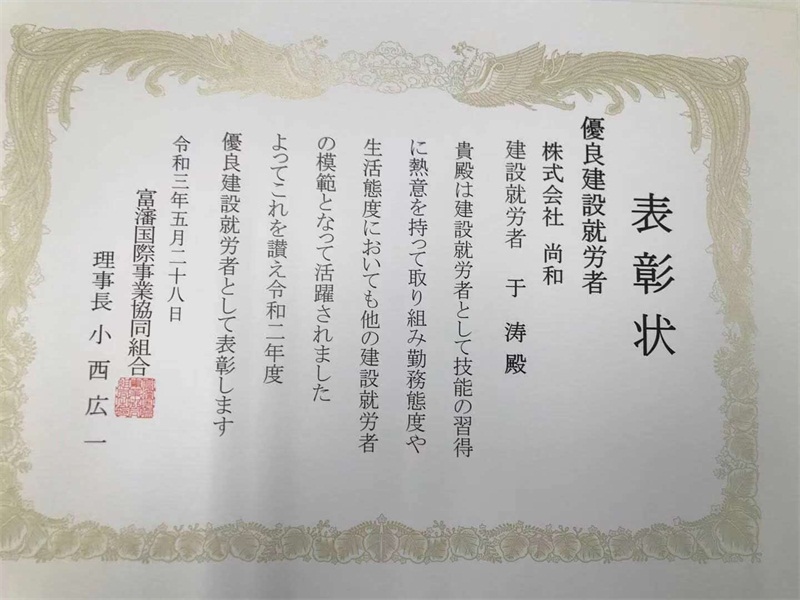 表彰状
優良建設就労者
株式会社 尚和
建設就労者 于 涛 殿
貴殿は建設就労者として技能の習得
に熱意を持って取り組み勤務態度や
生活態度においても他の建設就労者
の模範となって活躍されました
よってこれを讃え令和二年度
優良建設就労者として表彰します
令和三年五月二十八日
富瀋国際事業協同組合
理事長 小西広一